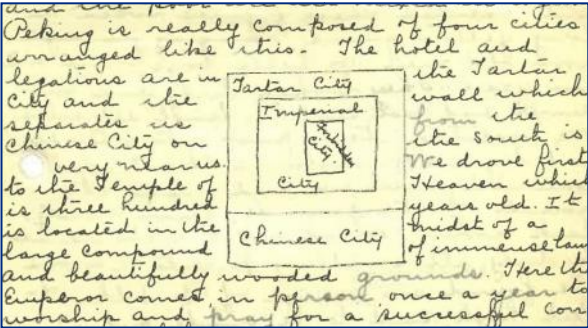 and the poor are
Peking is really composed of four cities
arranged like this. The hotel and
legations are in the Tartar
City and the wall which
separates us from the
Chinese City on the South is
very near us. We drove first
to the Temple of Heaven which
is three hundred years old. It
is located in the midst of a
large compound of immense
and beautifully wooded grounds. Here the
Emperor comes, in person once a year to
worship and pray for a successful
Tartar City
Imperial
Forbidden
City
City
Chinese City